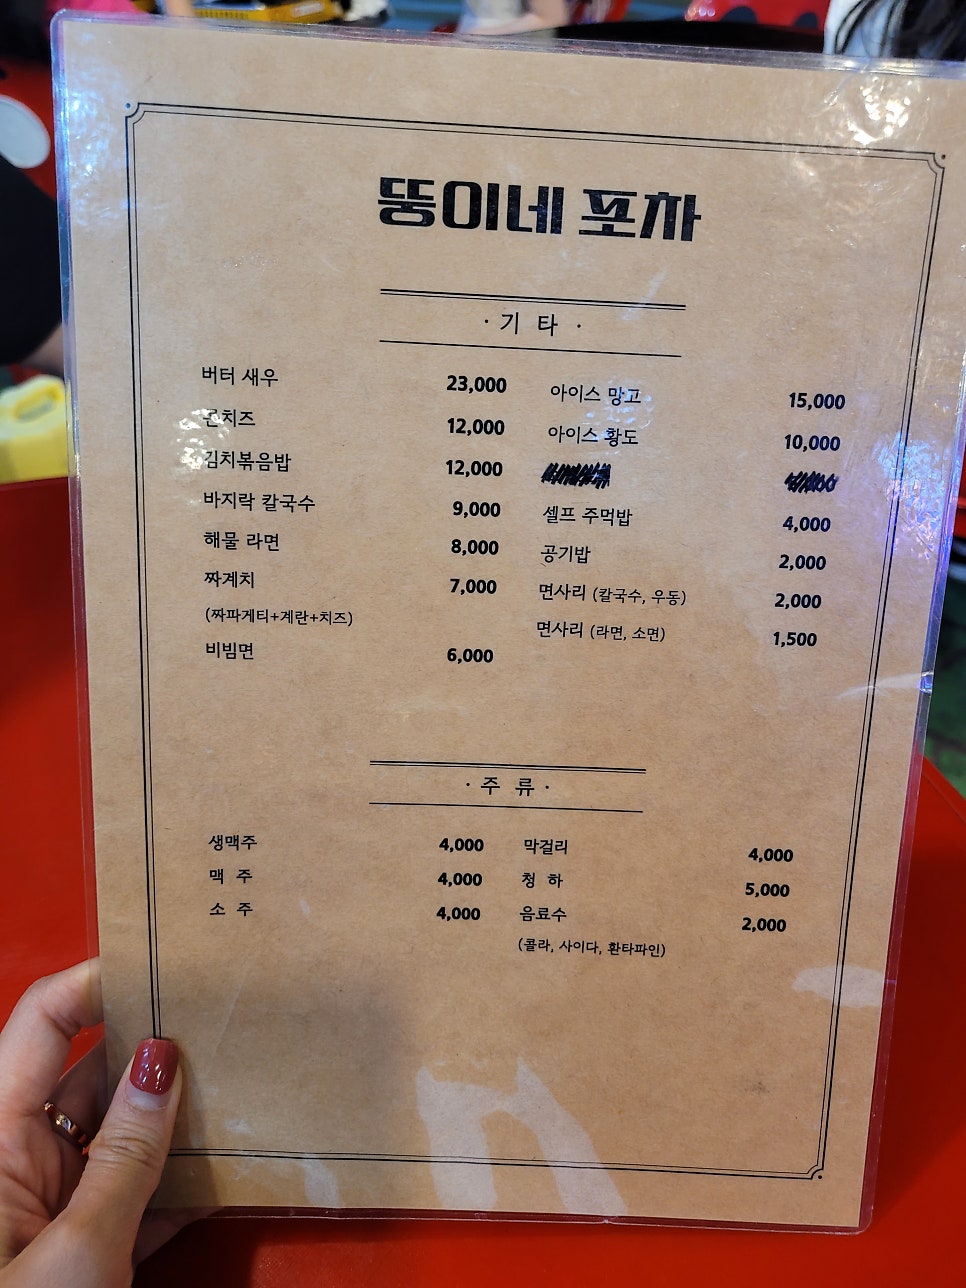 뚱이네 포차
· 기 타 ·
버터 새우 23,000
콘치즈 12,000
김치볶음밥 12,000
바지락 칼국수 9,000
해물 라면 8,000
짜계치 7,000
(짜파게티+계란+치즈)
비빔면 6,000
아이스 망고 15,000
아이스 황도 10,000
셀프 주먹밥 4,000
공기밥 2,000
면사리 (칼국수, 우동) 2,000
면사리 (라면, 소면) 1,500
· 주 류 ·
생맥주 4,000
맥 주 4,000
소 주 4,000
막걸리 4,000
청 하 5,000
음료수 2,000
(콜라, 사이다, 환타파인)